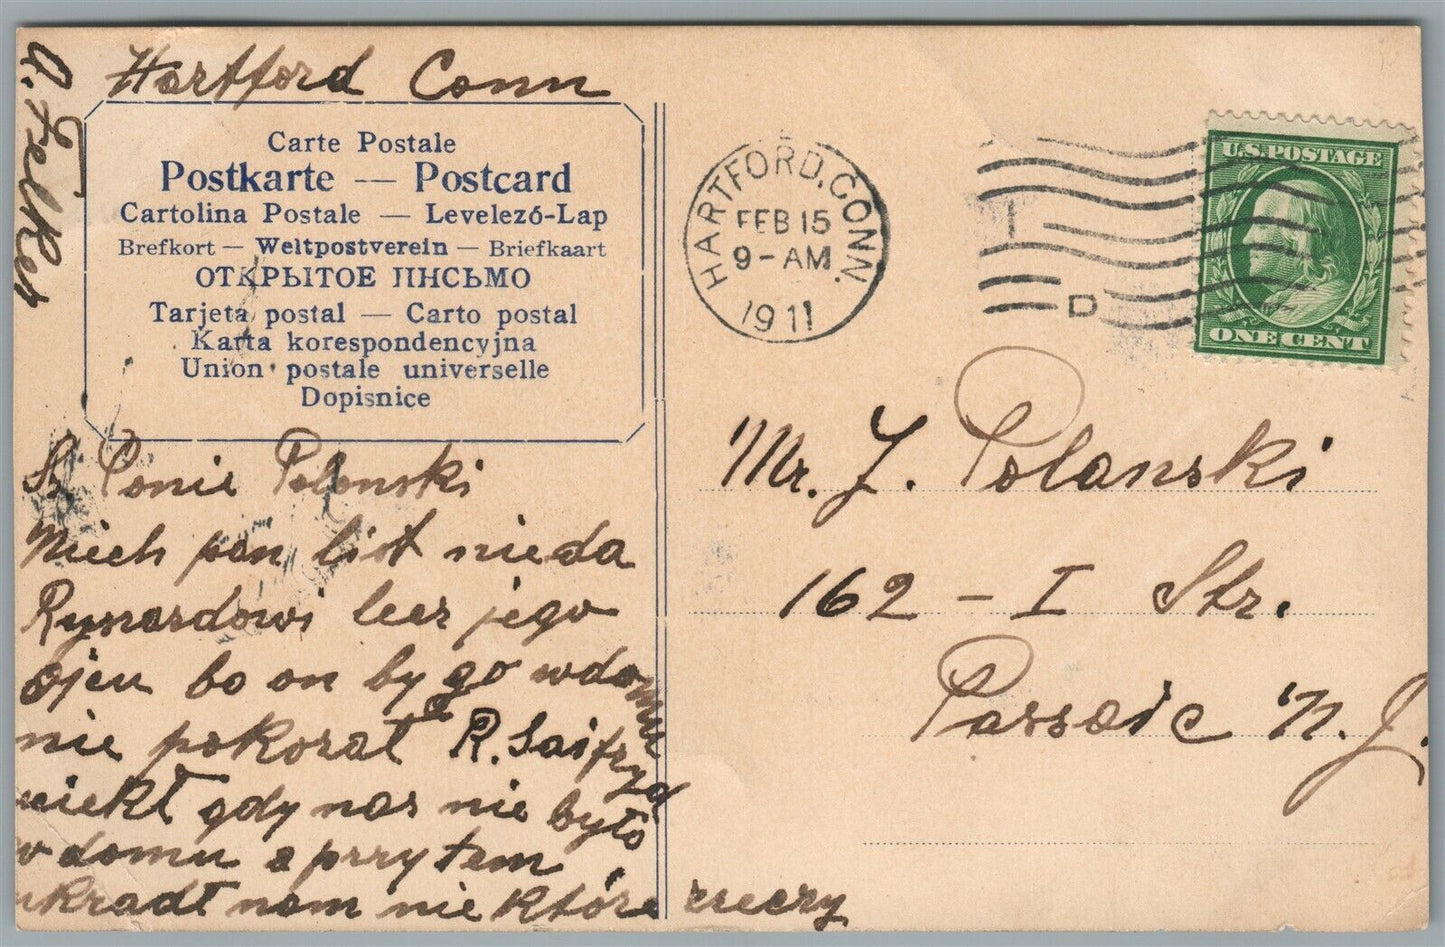 A. Felker
Hartford Conn
Carte Postale
Postkarte — Postcard
Cartolina Postale — Levelező-Lap
Brefkort — Weltpostverein — Briefkaart
ОТКРЫТОЕ ПИСЬМО
Tarjeta postal — Carto postal
Karta korespondencyjna
Union postale universelle
Dopisnice
HARTFORD, CONN.
FEB 15
9-AM
1911
I
D
U.S. POSTAGE
ONE CENT
Sz Ponie Polonski
Niech pan list nieda
Rymardowi lecz jego
ojcu bo on by go wdomu
nie pokozat R. Saifryd
uciekł gdy nas nie było
w domu a przy tem
ukradł nam nie które rzeczy
Mr. J. Polanski
162 – I Str.
Passaic N. J.